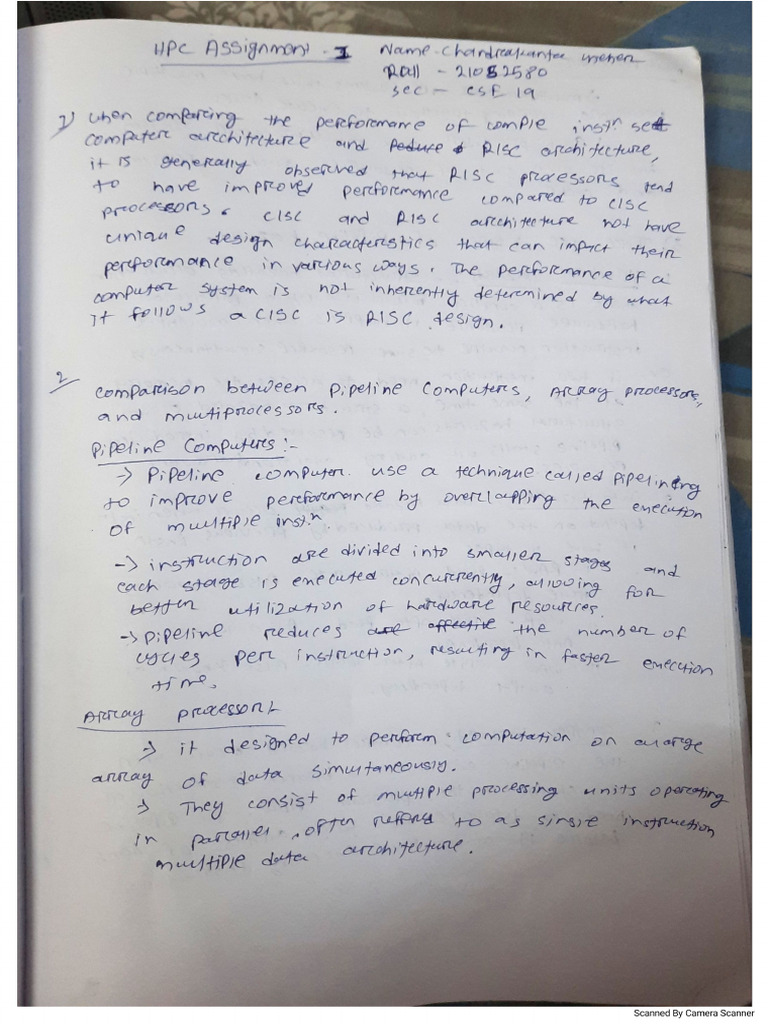 HPC Assignment - I Name - Chandrakanta Meher
Roll - 21052580
sec - CSE 19
1) when comparing the performance of comple instn set
computer architecture and Reduce RISC architecture,
it is generally observed that RISC processors tend
to have improved performance compared to CISC
processors. CISC and RISC architecture not have
unique design characteristics that can impact their
performance in various ways. The performance of a
computer system is not inherently determined by what
it follows a CISC is RISC design.
2
comparison between pipeline computers, Array processors,
and multiprocessors.
Pipeline Computers :-
-> Pipeline computer use a technique called pipelining
to improve performance by overlapping the execution
of multiple instn
-> instruction are divided into smaller stages and
each stage is executed concurrently, allowing for
better utilization of hardware resources.
-> pipeline reduces are effective the number of
cycles per instruction, resulting in faster execution
time.
Array processor :-
-> it designed to perform computation on a large
array of data simultaneously.
-> They consist of multiple processing units operating
in parallel, often refers to as single instruction
multiple data architecture.
Scanned By Camera Scanner